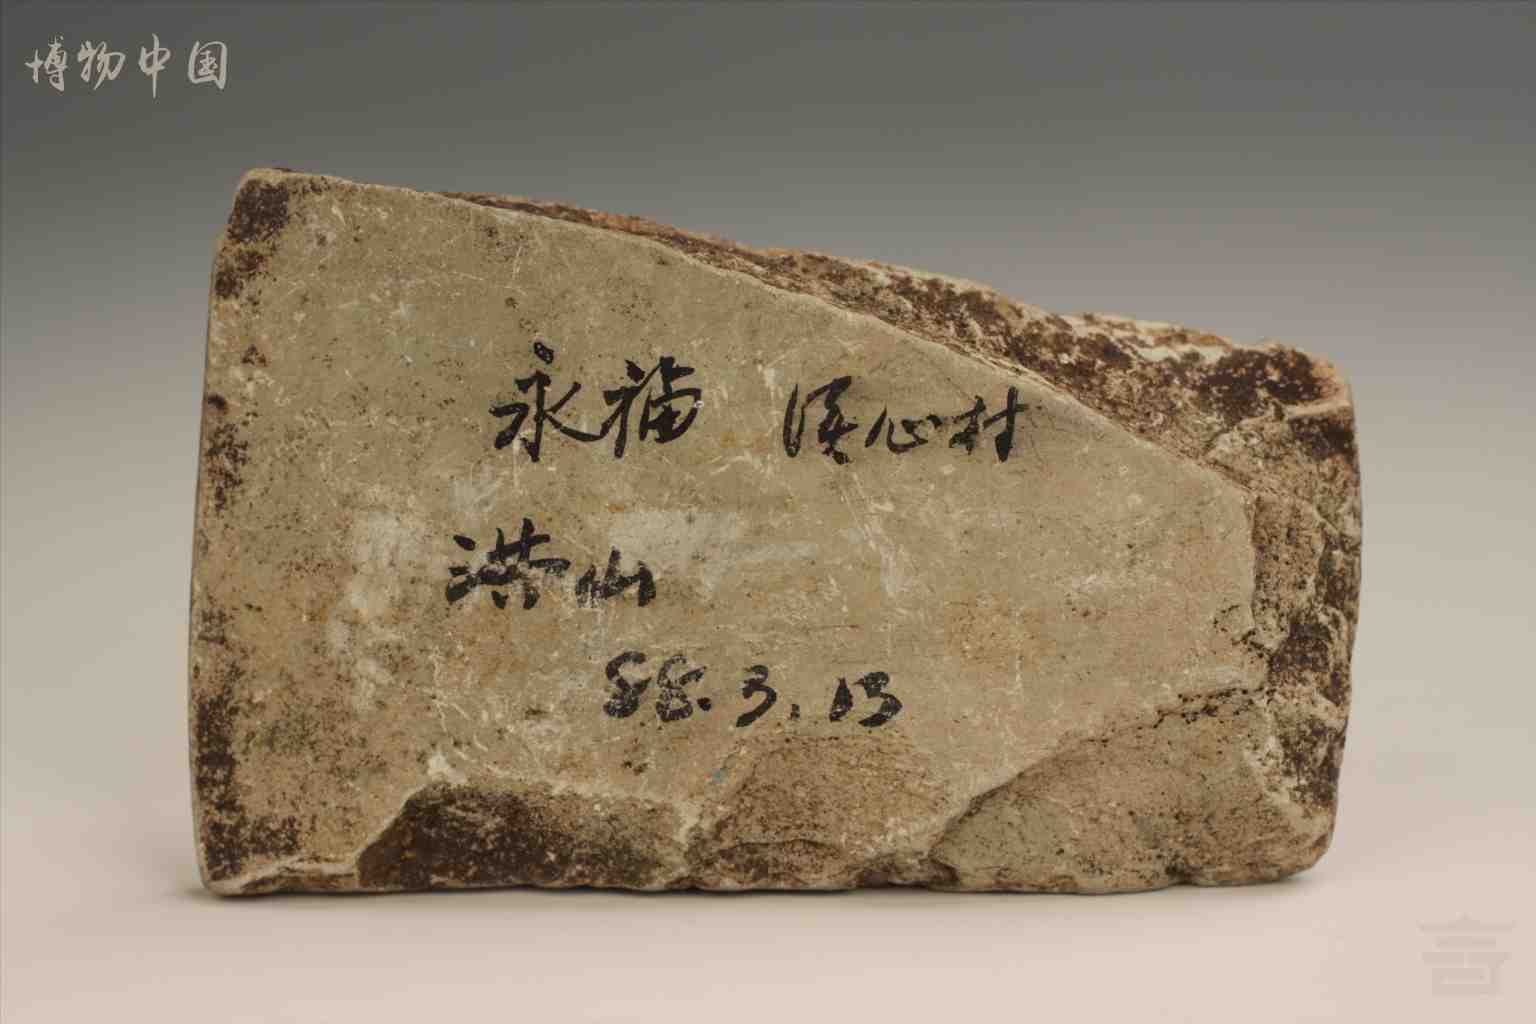 博物中国
永福 心村
洪山
88.3.13